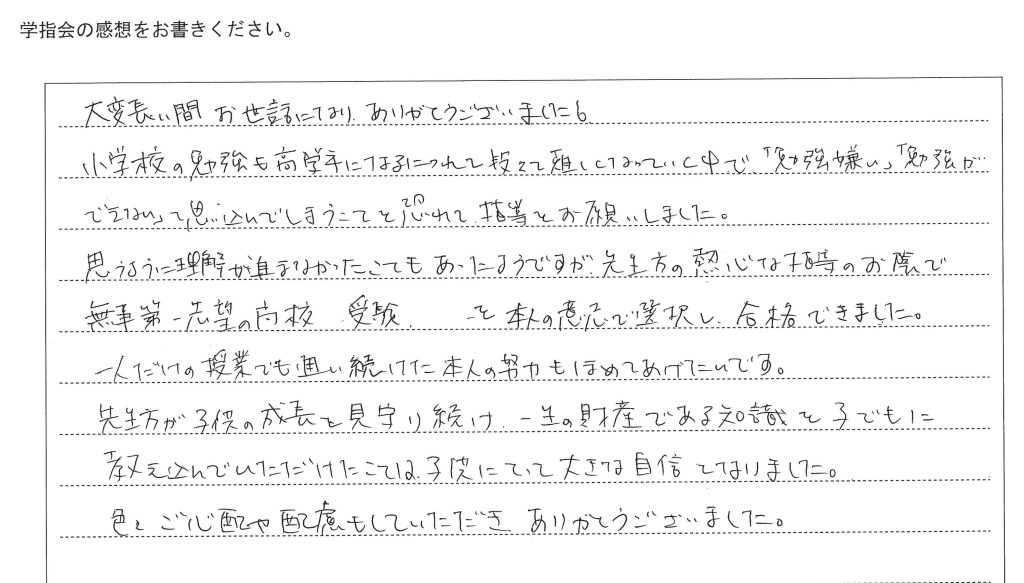 学指会の感想をお書きください。
大変長い間お世話になり、ありがとうございました。
小学校の勉強も高学年になるにつれて段々て難しくなっていく中で「勉強嫌い」「勉強が
できない」て思い込んでしまうことを恐れて指導をお願いしました。
思うように理解が進まなかったこともあったようですが、先生方の熱心な指導のお陰で
無事第一志望の高校 受験、 を本人の意志で選択し、合格できました。
一人だけの授業でも通い続けた本人の努力もほめてあげたいです。
先生方が子供の成長を見守り続け、一生の財産である知識を子どもに
教え込んでいただけたことは、子供にとって大きな自信となりました。
色々ご心配や配慮もしていただき、ありがとうございました。